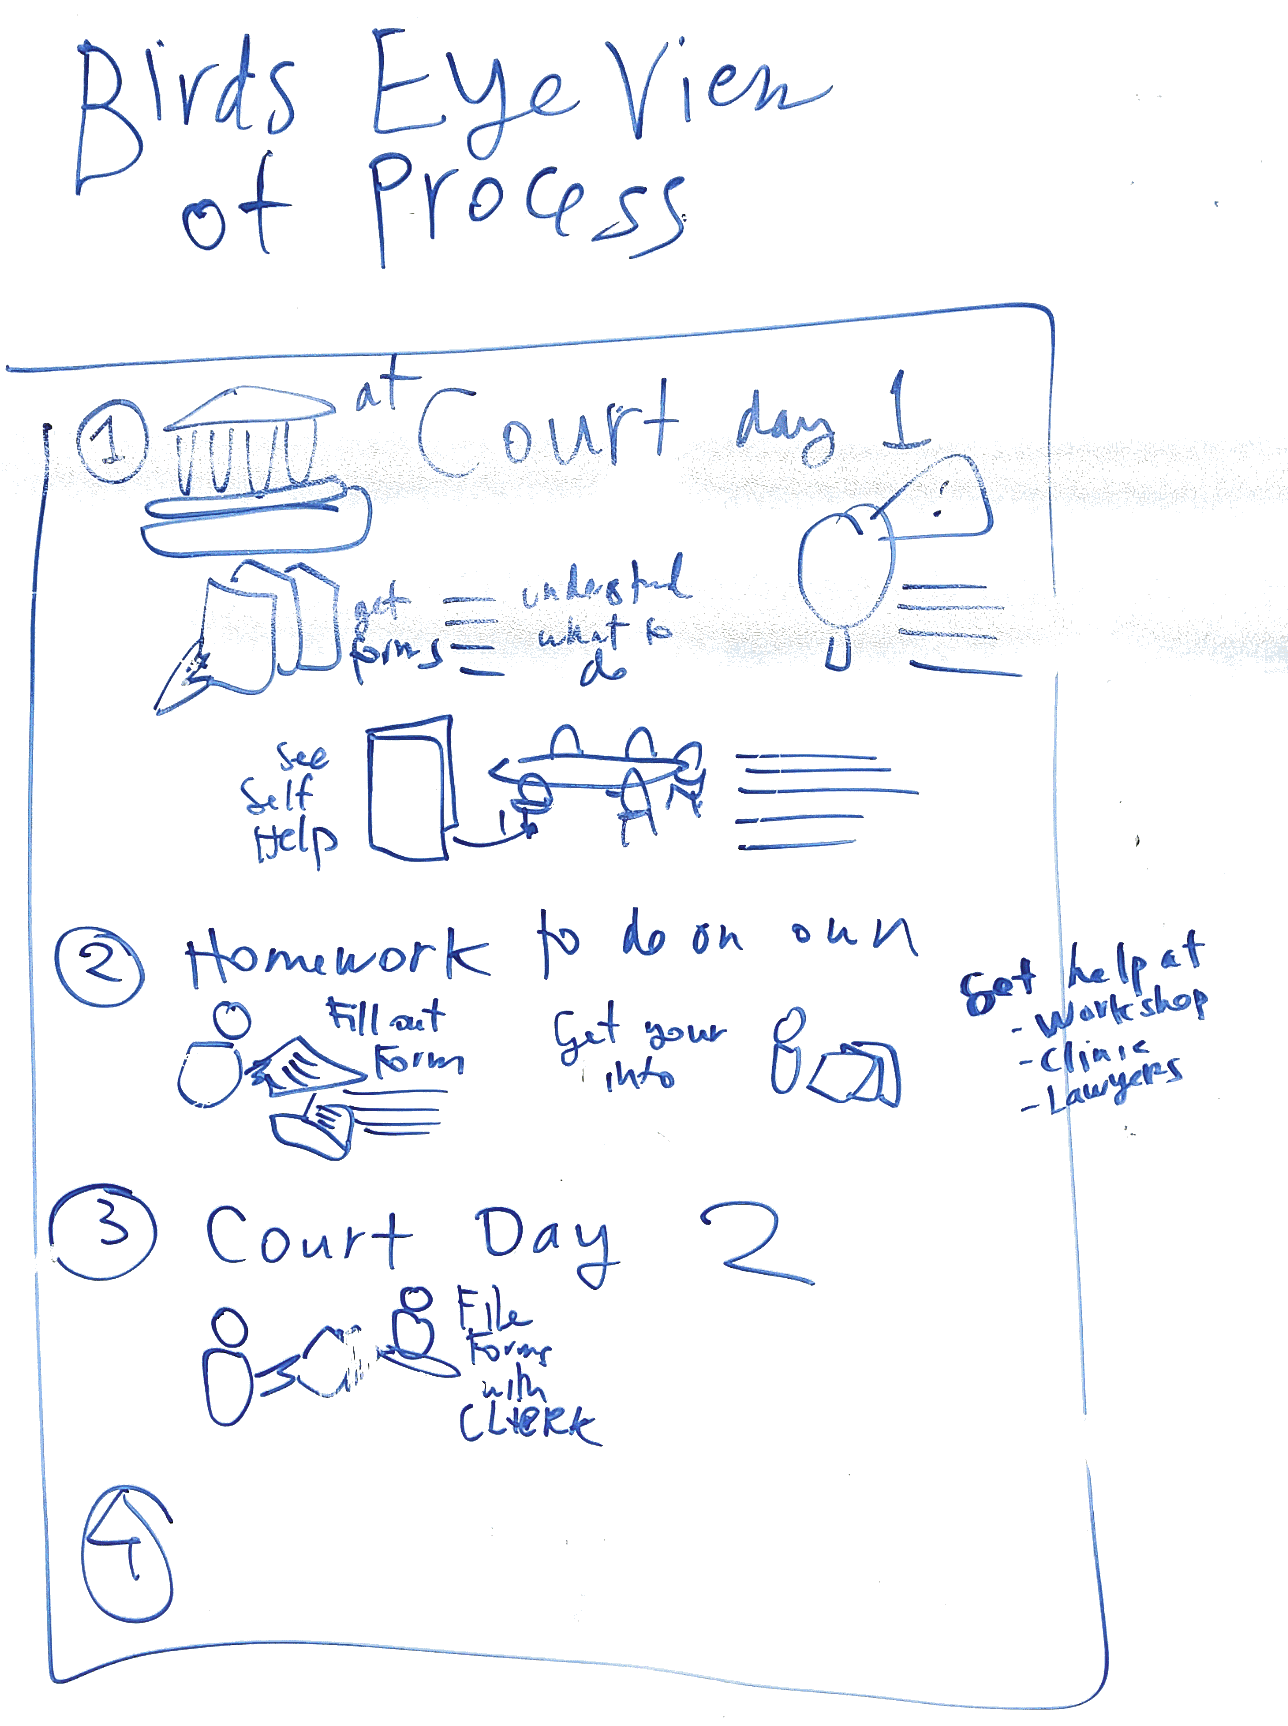 Birds Eye View
of Process
1 at Court day 1
!
get
forms
understand
what to
do
See
Self
Help
2 Homework to do on own
Fill out
Form
Get your
info
Get help at
- Workshop
- Clinic
- Lawyers
3 Court Day 2
File
Forms
with
CLERK
4